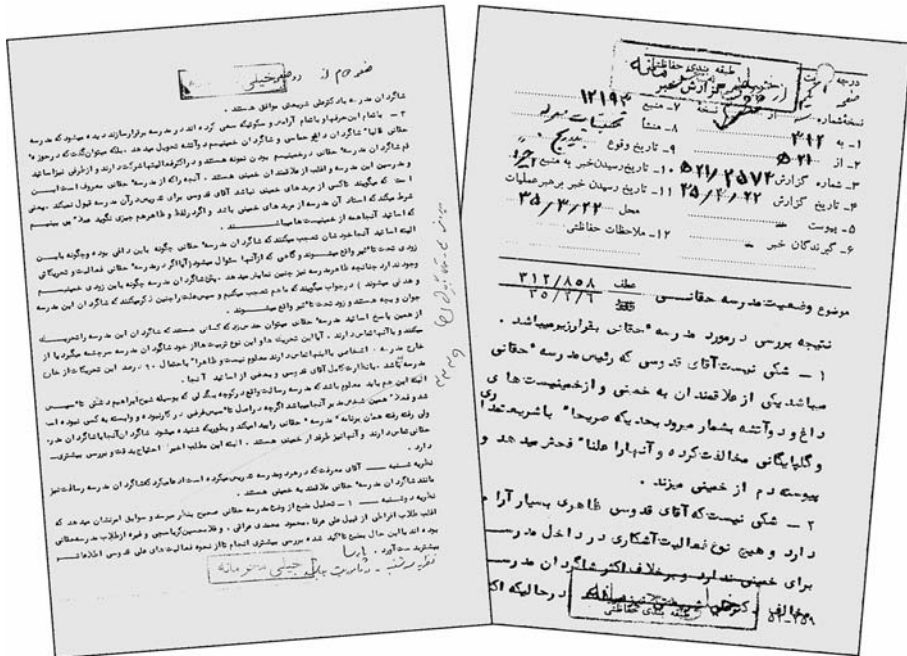 درجه
طبقه بندی حفاظتی
صفحه
گزارش خبر
نسخه شماره از نسخه
۱- به ۳۱۲
۷- منبع ۱۲۱۹۴
۲- از ۵۲۱
۸- منشأ
۳- شماره گزارش ۵۲۱/۲۵۷۲
۹- تاریخ وقوع
۴- تاریخ گزارش ۳۵/۳/۲۲
۱۰- تاریخ رسیدن خبر به منبع
۵- پیوست
۱۱- تاریخ رسیدن خبر به رهبر عملیات
۶- گیرندگان خبر
محل ۳۵/۳/۲۲
۱۲- ملاحظات حفاظتی
موضوع وضعیت مدرسه حقانی عطف ۳۱۲/۸۵۸
نتیجه بررسی در مورد مدرسه حقانی بقرار زیر میباشد .
۱ – شکی نیست آقای قدوسی که رئیس مدرسه حقانی
میباشد یکی از علاقمندان به خمینی و از خمینیست های
داغ و دوآتشه بشمار میرود بحدیکه صریحا" با شریعتمداری
و گلپایگانی مخالفت کرده و آنها را علنا" فحش میدهد و
پیوسته دم از خمینی میزند .
۲ – شکی نیست که آقای قدوسی ظاهری بسیار آرام
دارد و هیچ نوع فعالیت آشکاری در داخل مدرسه
برای خمینی ندارد و برخلاف اکثر شاگردان مدرسه
مخالف دکتر شریعتی در حالیکه اکثر
طبقه بندی حفاظتی
۵۲-۲۵۹
صفحه دوم از دو صفحه
خیلی محرمانه
شاگردان مدرسه با دکتر علی شریعتی موافق هستند .
۳ – با تمام این حرفها و با تمام آرامش و سکوتیکه سعی کرده اند در مدرسه برقرار سازند دیده میشود که مدرسه
حقانی غالبا" شاگردان داغ و حماسی و شاگردان خمینیسم دوآتشه تحویل میدهد . بلکه میتوان گفت که در حوزه
قم شاگردان مدرسه حقانی در خمینیسم بودن نمونه هستند و در اکثر فعالیتها شرکت دارند و از طرفی نیز اساتید
و مدرسین این مدرسه و اغلب از علاقمندان خمینی هستند . آنچه را که از مدرسه حقانی معروف است این
است که میگویند تا کسی از مریدهای خمینی نباشد آقای قدوسی برای تدریس در آن مدرسه قبول نمیکند . یعنی
شرط میکند که استاد آن مدرسه از مریدهای خمینی باشد و اگر لفظا" و ظاهرا" هم چیزی نگوید عملا" می بینیم
که اساتید آنجا همه از خمینیست ها میباشند .
البته اساتید آنجا خودشان تعجب میکنند که شاگردان مدرسه حقانی چگونه باین داغی بوده و چگونه باین
زودی تحت تاثیر واقع میشوند و گاهی که از آنها سئوال میشود (آیا اگر در مدرسه حقانی فعالیت و تحریکاتی
وجود ندارد چنانچه ظاهر مدرسه نیز چنین نمایش میدهد . پس شاگردان مدرسه چگونه باین زودی خمینیسم
و هدفی میشوند ) در جواب میگویند که ما هم تعجب میکنیم و سپس علت را چنین ذکر میکنند که شاگردان این مدرسه
جوان و بچه هستند و زود تحت تاثیر واقع میشوند .
از همین پاسخ اساتید مدرسه حقانی میتوان حدس زد که کسانی هستند که شاگردان این مدرسه را تحریک
میکنند و با آنها تماس دارند . آیا این تحریک ها و این نوع تربیت ها از خود شاگردان مدرسه سرچشمه میگیرد یا از
خارج مدرسه اشخاصی با اینها تماس دارند معلوم نیست و ظاهرا" با احتمال ۹۰ درصد این تحریکات از خارج
مدرسه باشد . با نظارت کامل آقای قدوسی و بعضی از اساتید آنجا .
البته این هم باید معلوم باشد که مدرسه رسالت واقع در کوچه بیگدلی که بوسیله شیخ ابراهیم دشتی تاسیس
شد و فعلا" همین شخص مدیر آنجا میباشد اگرچه در اصل تاسیس غرضی در کار نبوده و وابسته به کسی نبوده است
ولی رفته رفته همان برنامه مدرسه حقانی را پیاده میکند و بطوریکه شنیده میشود شاگردان آنجا با شاگردان مدرسه
حقانی تماس دارند و آنها نیز طرفدار خمینی هستند . البته این مطلب اخیر احتیاج بدقت و بررسی بیشتری
دارد .
نظریه شنبه — آقای معرفت که در هر دو مدرسه تدریس میکرده است ادعا میکرد که شاگردان مدرسه رسالت نیز
مانند شاگردان مدرسه حقانی علاقمند به خمینی هستند .
نظریه دوشنبه — ۱ – تحلیل منبع از وضع مدرسه حقانی صحیح بنظر میرسد و سوابق امر نشان میدهد که
اغلب طلاب افراطی از قبیل علی عرفا ، محمود محمدی عراقی ، و غلامحسین کرباسچی و غیره از طلاب مدرسه حقانی
بوده اند با این حال بمنبع تاکید شده بررسی بیشتری انجام تا از نحوه فعالیت های علی قدوسی اطلاعات
بیشتری بدست آورد . پارسا
نظریه سه شنبه -
خیلی محرمانه